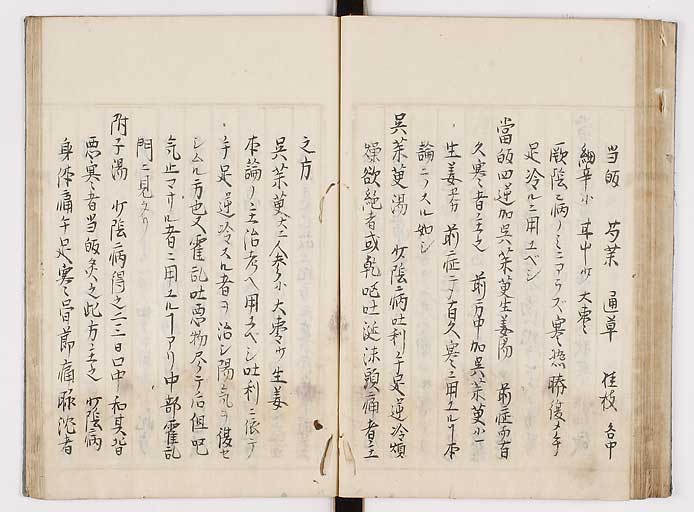 当皈 芍薬 通草 桂枝 各中
細辛小 甘中少 大枣
厥陰病ノミニアラズ寒熱勝復メ手
足冷ルニ用ユベシ
當皈四逆加呉茱萸生姜湯 前症而有
久寒者主之 前方中加呉茱萸小
生姜 前症ニテ有久寒ニ用エル 本
論ニノスル如シ
呉茱萸湯 少陰病吐利手足逆冷煩
燥欲絶者或乾呕吐涎沫頭痛者主
之方
呉茱萸大 人参小 大枣少 生姜
本論ノ主治考ヘ用ユベシ吐利ニ依テ
手足逆冷スル者ヲ治シ陽気ヲ復セ
シムル方也又霍乱吐悪物尽テ后但呕
気止マサル者ニ用エル アリ中部霍乱
門ニ見タリ
附子湯 少陰病得之一二三日口中和其背
悪寒者当皈灸之此方主之 少陰病
身体痛手足寒骨節痛脉沈者